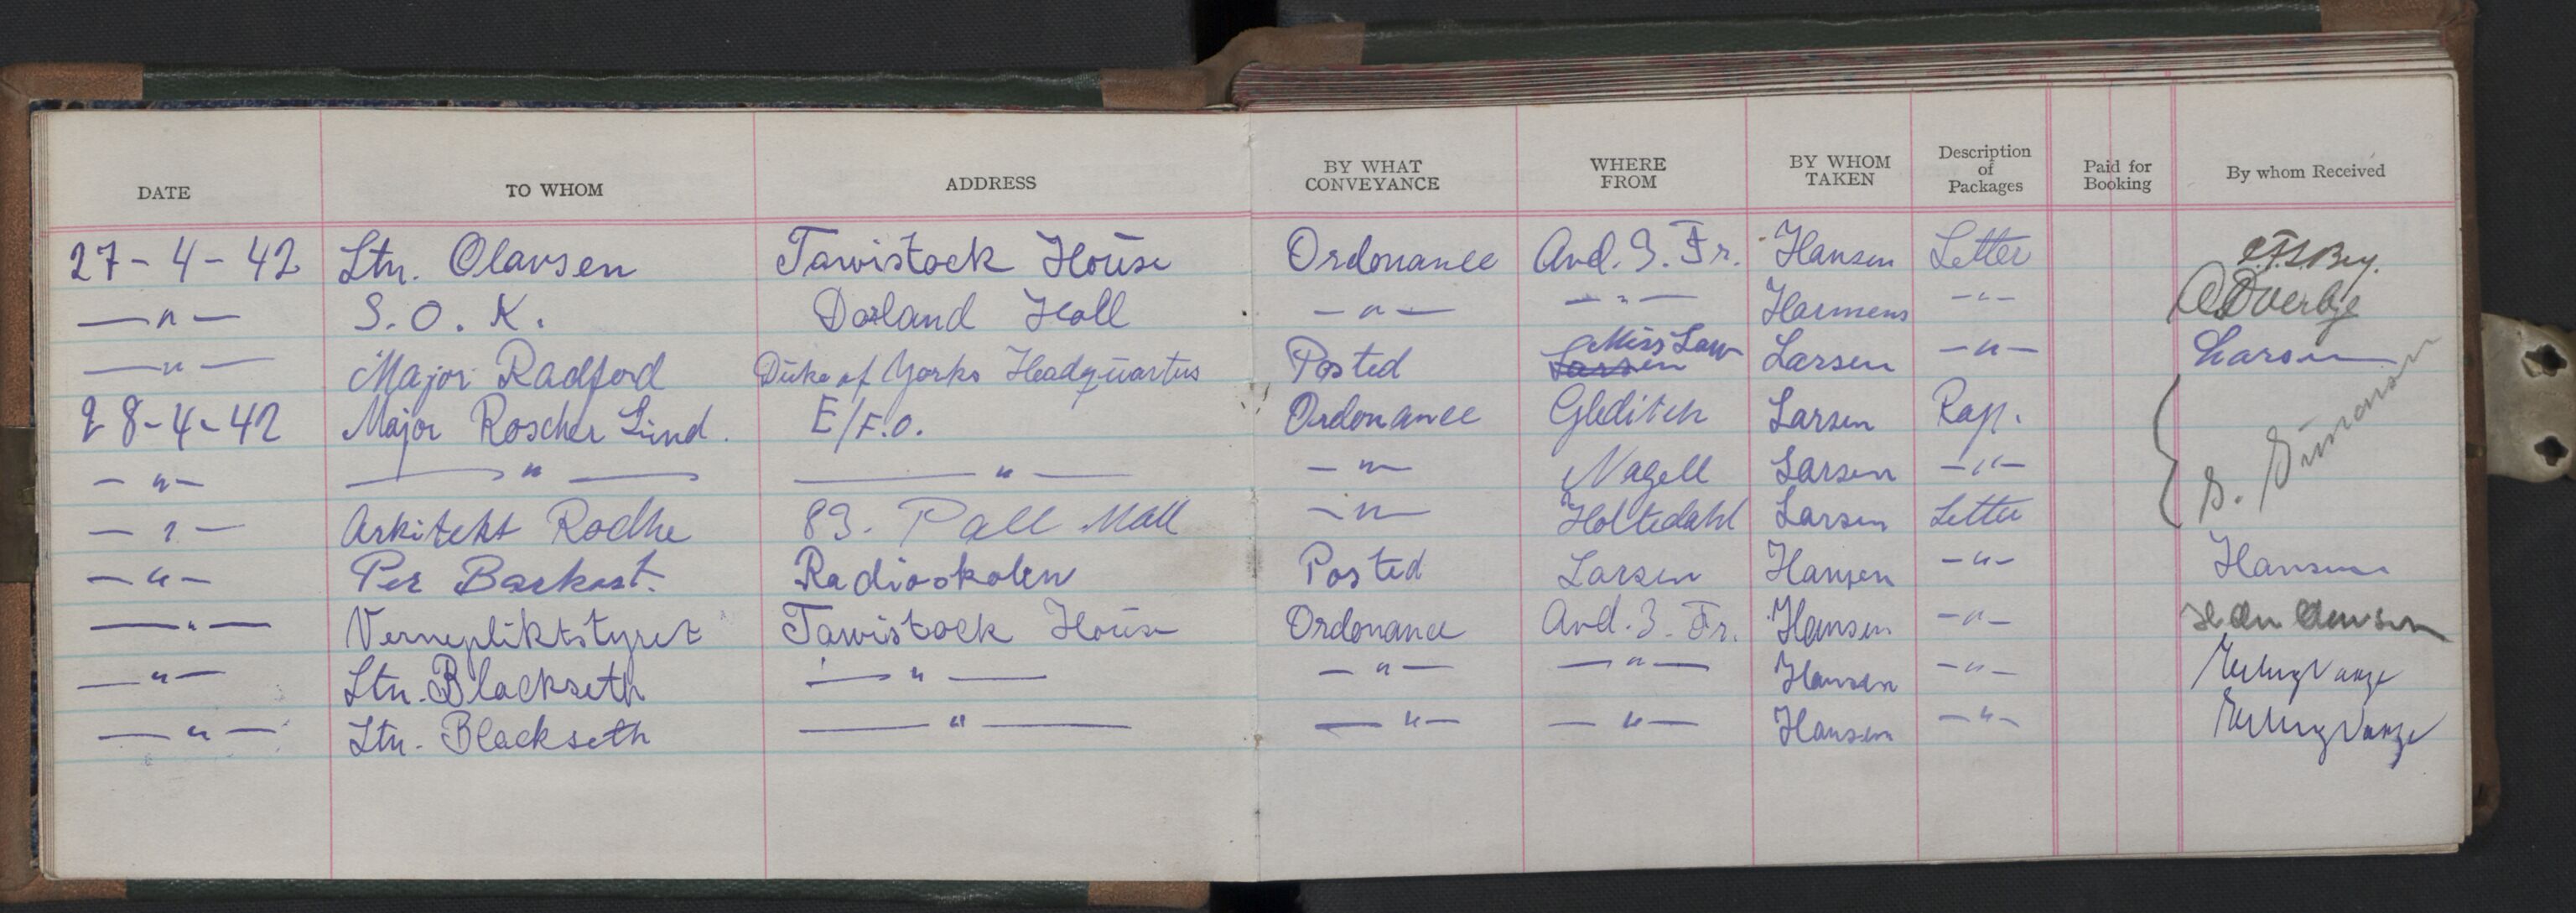 DATE TO WHOM ADDRESS BY WHAT CONVEYANCE WHERE FROM BY WHOM TAKEN Description of Packages Paid for Booking By whom Received
27-4-42 Ltn. Olavsen Tawistock House Ordonance Avd. 3. Fr. Hansen Letter
—"— S.O.K. Dorland Hall —"— —"— Harmens —"— Överbye
—"— Major Radford Duke of Yorks Headquartus Posted Larsen Miss Law Larsen —"— Larsen
28-4-42 Major Roscher Lund. E/F.O. Ordonance Gleditch Larsen Rap.
—"— —"— —"— —"— Nagell Larsen —"—
—"— Arkitekt Rodhe 83. Pall Mall —"— Holtedahl Larsen Letter
—"— Per Barkost. Radioskolen Posted Larsen Hansen —"— Hansen
—"— Vernepliktstyret Tawistock House Ordonance Avd. 3. Fr. Hansen —"—
—"— Ltn. Blackseth —"— —"— —"— Hansen —"—
—"— Ltn. Blackseth —"— —"— —"— Hansen —"—